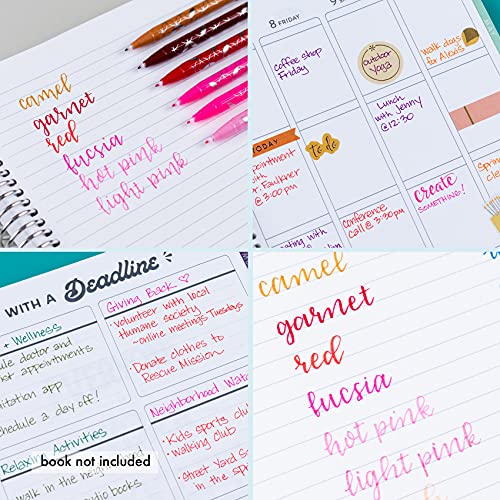 camel
garnet
red
fucsia
hot pink
light pink
8 FRIDAY
9
coffee shop
Friday
outdoor
Yoga
walk dogs
for Alexis
Lunch
with Jenny
@12:30
TODAY
to do
appointment
with
Mr. Faulkner
@ 3:00 pm
conference
call @ 3:30pm
create
SOMETHING!
Spring
cle
eating with
WITH A Deadline
+ Wellness
doctor and
appointments
app
schedule a day off!
Relaxing Activities
walk in the
books
Giving Back ♡
• volunteer with local
humane society
~online meetings Tuesdays
• Donate clothes to
Rescue Mission
Neighborhood Wat
• Kids sports club
• walking club
• Street Yard S
in the sp
book not included
camel
garnet
red
fucsia
hot pink
light pink